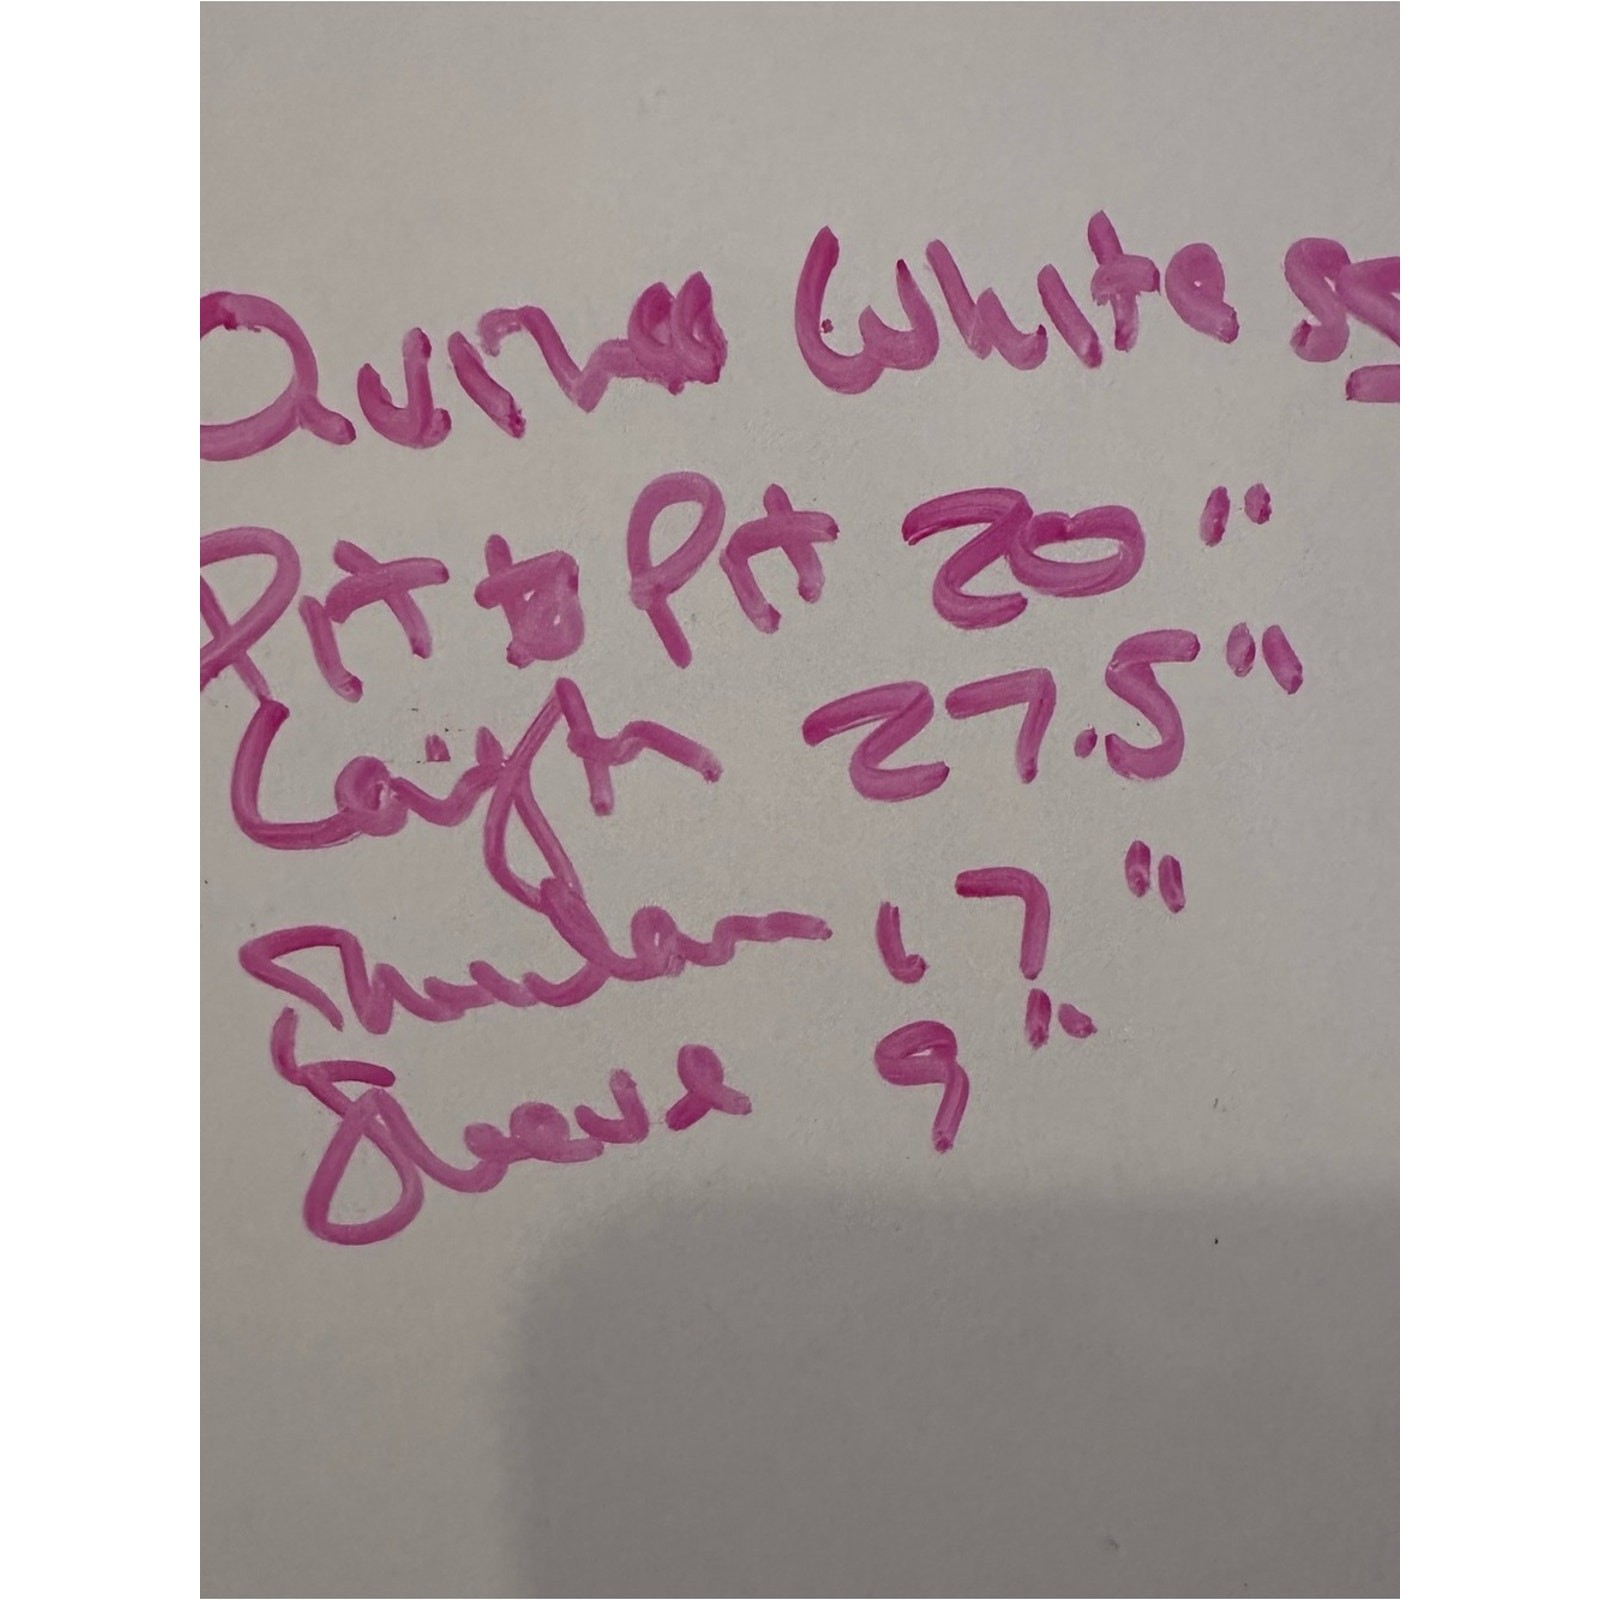 Quince White SS
Pit to Pit 20"
Length 27.5"
Shoulder 17"
Sleeve 9"